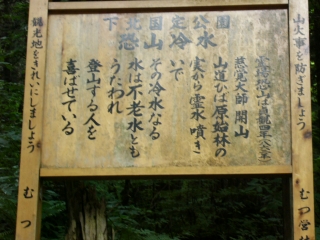 下北国定公園
恐山冷水
山火事を防ぎましょう
むつ営林
慈覚大師 開山
山道ひば原始林の
奥から霊水噴き
いで
その冷水なる
水は不老水とも
うたわれ
登山する人を
喜ばせている
観光地をきれいにしましょう
むつ